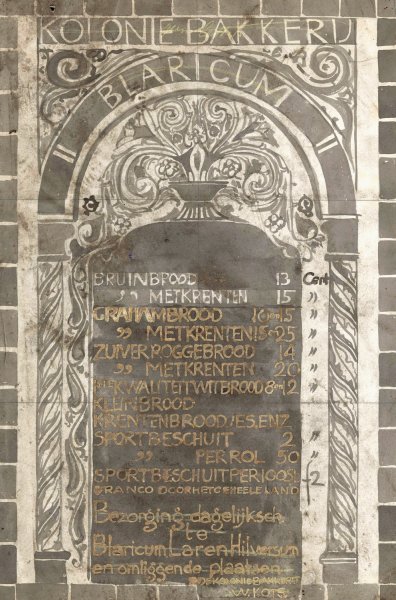 KOLONIE BAKKERIJ
BLARICUM
BRUINBROOD 13 Cent
„ METKRENTEN 15 „
GRAHAMBROOD 10 en 15 „
„ METKRENTEN 15 en 25 „
ZUIVER ROGGEBROOD 14 „
„ METKRENTEN 20 „
KWALITEIT WITBROOD 8 12 „
KLIJNBROOD
KRENTENBROODJES, ENZ
SPORTBESCHUIT 2 „
„ PER ROL 50 „
SPORTBESCHUIT PER 100 St f2
FRANCO DOOR HET GEHEELE LAND
Bezorging dagelijksch
te
Blaricum Laren Hilversum
en omliggende plaatsen
DE KOLONIE BAKKERIJ